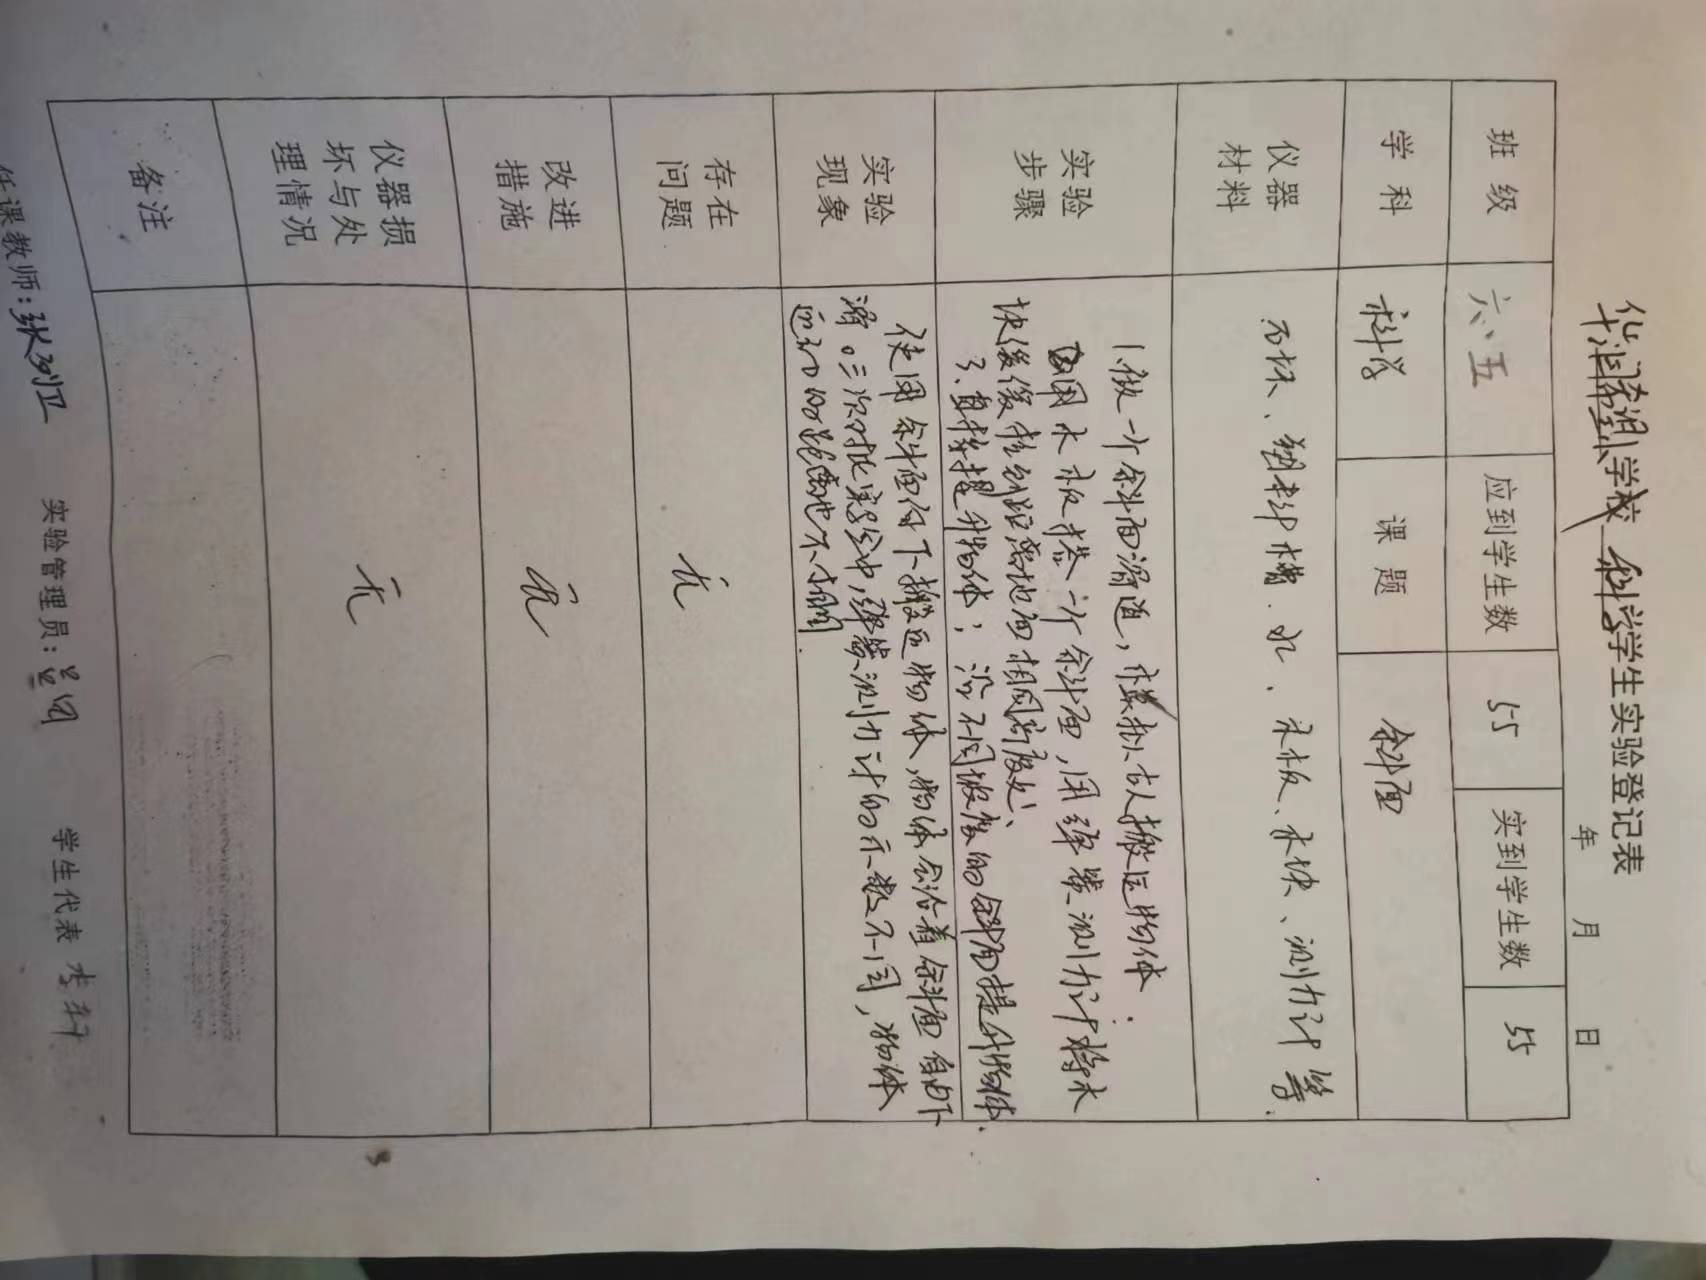 学校 科学学生实验登记表
年 月 日
班级 六、五 应到学生数 55 实到学生数 55
学科 科学 课题 斜面
仪器材料 石块、塑料槽、水、木板、木块、测力计等.
实验步骤 1.做一个斜面滑道,模拟古人搬运物体.
用木板搭一个斜面,用弹簧测力计将木
块缓缓拉到距离地面相同高度处、
3.直接提升物体;沿不同坡度的斜面提升物体.
实验现象 使用斜面向下搬运物体,物体会沿着斜面自由下
滑。三次对比实验中,弹簧测力计的示数不同,物体
运动的距离也不相同.
存在问题 无
改进措施 无
仪器损坏与处理情况 无
备注
任课教师:张列卫 实验管理员: 学生代表 李